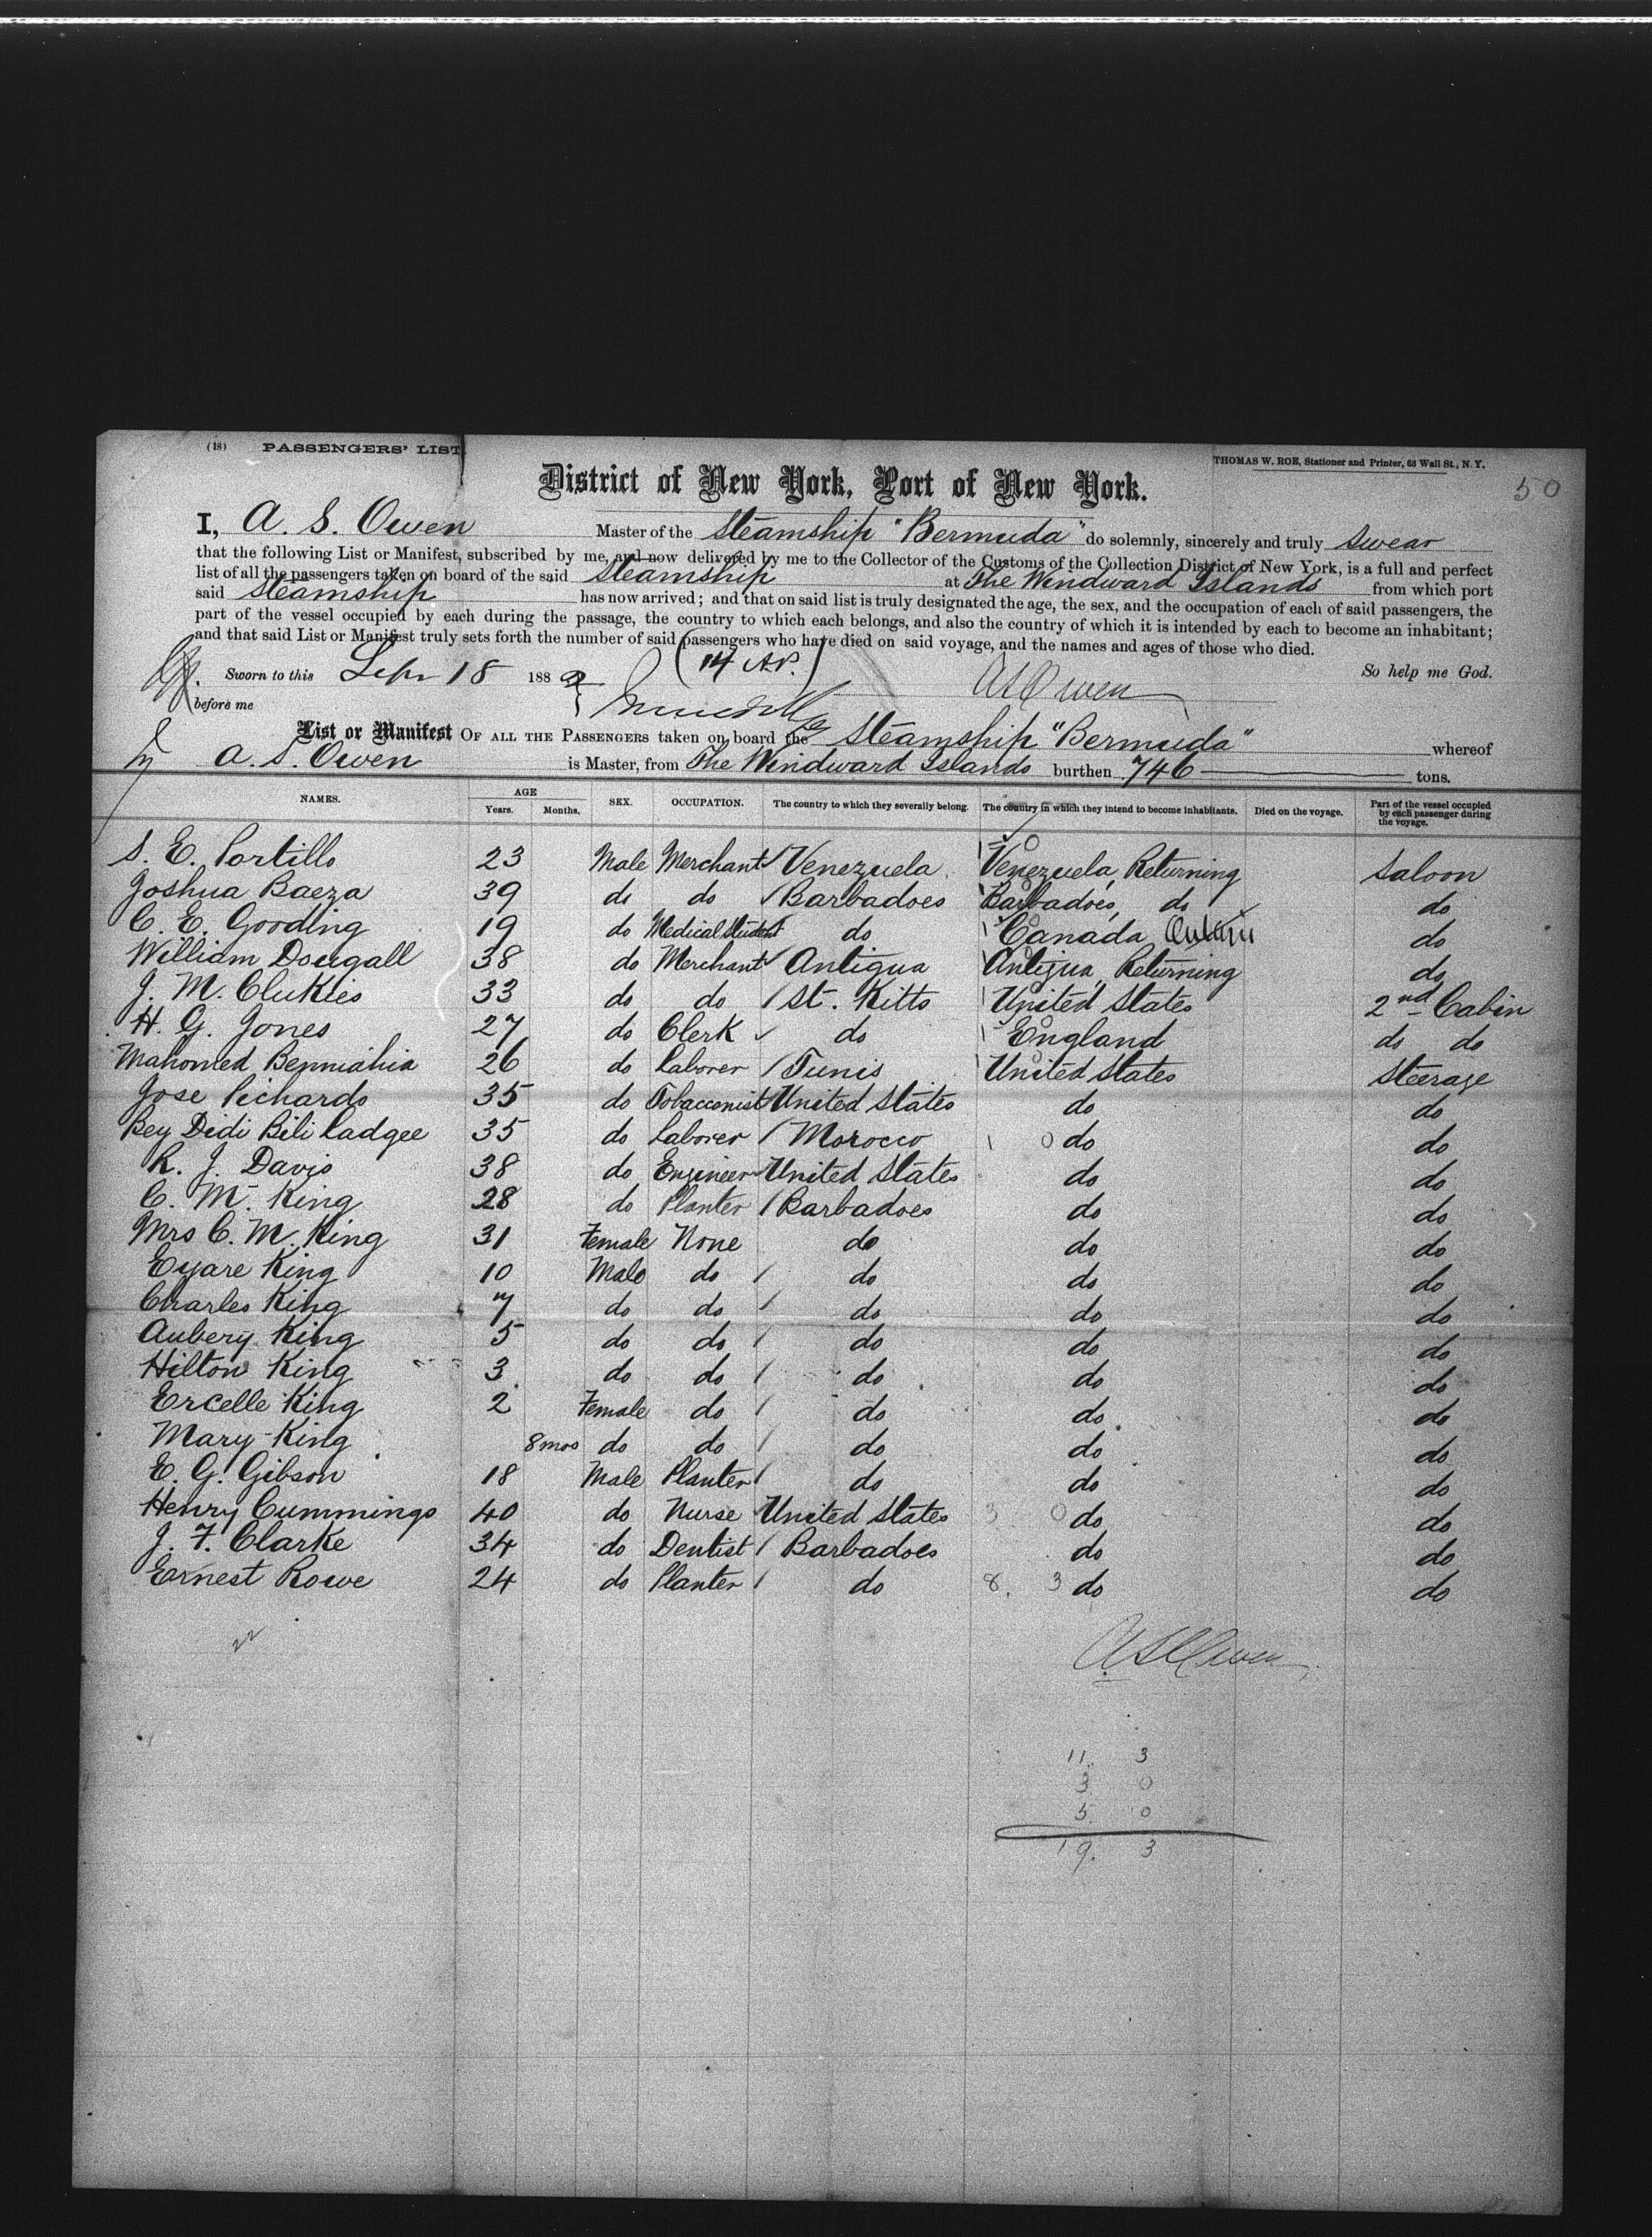 (18) PASSENGERS' LIST
THOMAS W. ROE, Stationer and Printer, 63 Wall St., N. Y.
District of New York, Port of New York.
50
I, A. S. Owen Master of the Steamship "Bermuda" do solemnly, sincerely and truly swear
that the following List or Manifest, subscribed by me, and now delivered by me to the Collector of the Customs of the Collection District of New York, is a full and perfect
list of all the passengers taken on board of the said Steamship at The Windward Islands from which port
said Steamship has now arrived; and that on said list is truly designated the age, the sex, and the occupation of each of said passengers, the
part of the vessel occupied by each during the passage, the country to which each belongs, and also the country of which it is intended by each to become an inhabitant;
and that said List or Manifest truly sets forth the number of said passengers who have died on said voyage, and the names and ages of those who died.
Sworn to this Sep 18 188 (14 A.P.) A S Owen So help me God.
before me
List or Manifest OF ALL THE PASSENGERS taken on board the Steamship "Bermuda" whereof
A. S. Owen is Master, from The Windward Islands burthen 746 tons.
NAMES. AGE Years. Months. SEX. OCCUPATION. The country to which they severally belong. The country in which they intend to become inhabitants. Died on the voyage. Part of the vessel occupied by each passenger during the voyage.
S. E. Portillo 23 Male Merchant Venezuela Venezuela, Returning Saloon
Joshua Baeza 39 do do Barbadoes Barbadoes, do do
C. E. Gooding 19 do Medical Student do Canada do
William Dougall 38 do Merchant Antigua Antigua, Returning do
J. M. Clukies 33 do do St. Kitts United States 2nd Cabin
H. G. Jones 27 do Clerk do England do do
Mahomed Benniahia 26 do Laborer Tunis United States Steerage
Jose Pichardo 35 do Tobacconist United States do do
Bey Didi Bili Ladgee 35 do Laborer Morocco do do
R. J. Davis 38 do Engineer United States do do
C. M. King 28 do Planter Barbadoes do do
Mrs C. M. King 31 Female None do do do
Eyare King 10 Male do do do do
Charles King 7 do do do do do
Aubery King 5 do do do do do
Hilton King 3 do do do do do
Ercelle King 2 Female do do do do
Mary King 8 mos do do do do do
E. G. Gibson 18 Male Planter do do do
Henry Cummings 40 do Nurse United States 3 0 do do
J. F. Clarke 34 do Dentist Barbadoes do do
Ernest Rowe 24 do Planter do 8. 3 do do
22
A S Owen
11. 3
3 0
5 0
19. 3